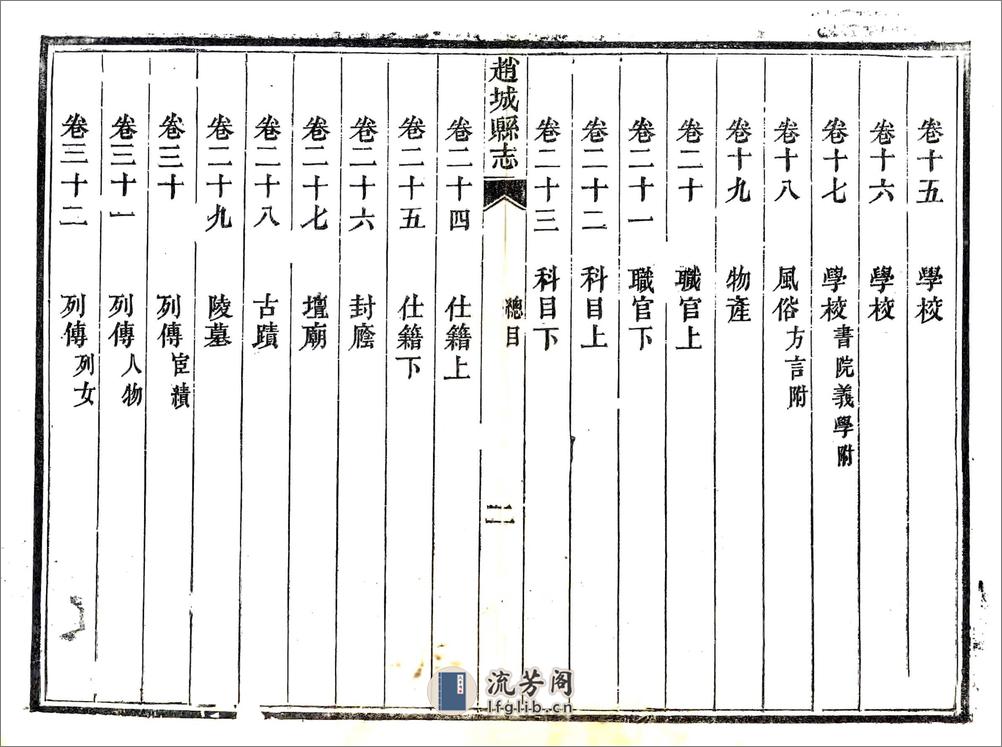 卷十五 學校
卷十六 學校
卷十七 學校書院義學附
卷十八 風俗方言附
卷十九 物產
卷二十 職官上
卷二十一 職官下
卷二十二 科目上
卷二十三 科目下
趙城縣志 總目 二
卷二十四 仕籍上
卷二十五 仕籍下
卷二十六 封廕
卷二十七 壇廟
卷二十八 古蹟
卷二十九 陵墓
卷三十 列傳宦績
卷三十一 列傳人物
卷三十二 列傳列女
流芳阁
lfglib.cn